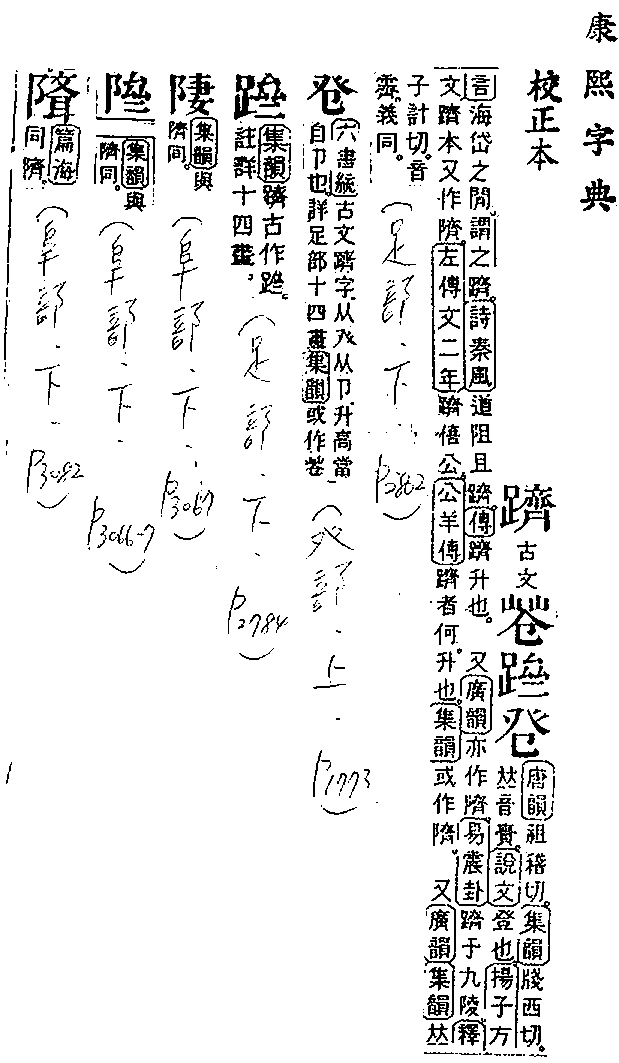 康熙字典
校正本
躋
古文
唐韻祖稽切。集韻牋西切。
𠀤音賷。說文登也。揚子方
言海岱之閒謂之躋。詩秦風道阻且躋。傳躋升也。又廣韻亦作隮。易震卦躋于九陵。釋
文躋本又作隮。左傳文二年躋僖公。公羊傳躋者何。升也。集韻或作隮。又廣韻集韻𠀤
子計切。音
霽。義同。
(足部.下.P2862)
六書統古文躋字。从癶从卩。升高當
自卩也。詳足部十四畫。集韻或作
(癶部.上.P1773)
集韻躋古作
註詳十四畫。
(足部.下.P2784)
集韻與
隮同。
(阜部.下.P3067)
集韻與
隮同。
(阜部.下.P3066-7)
篇海
同隮。
(阜部.下.P3082)